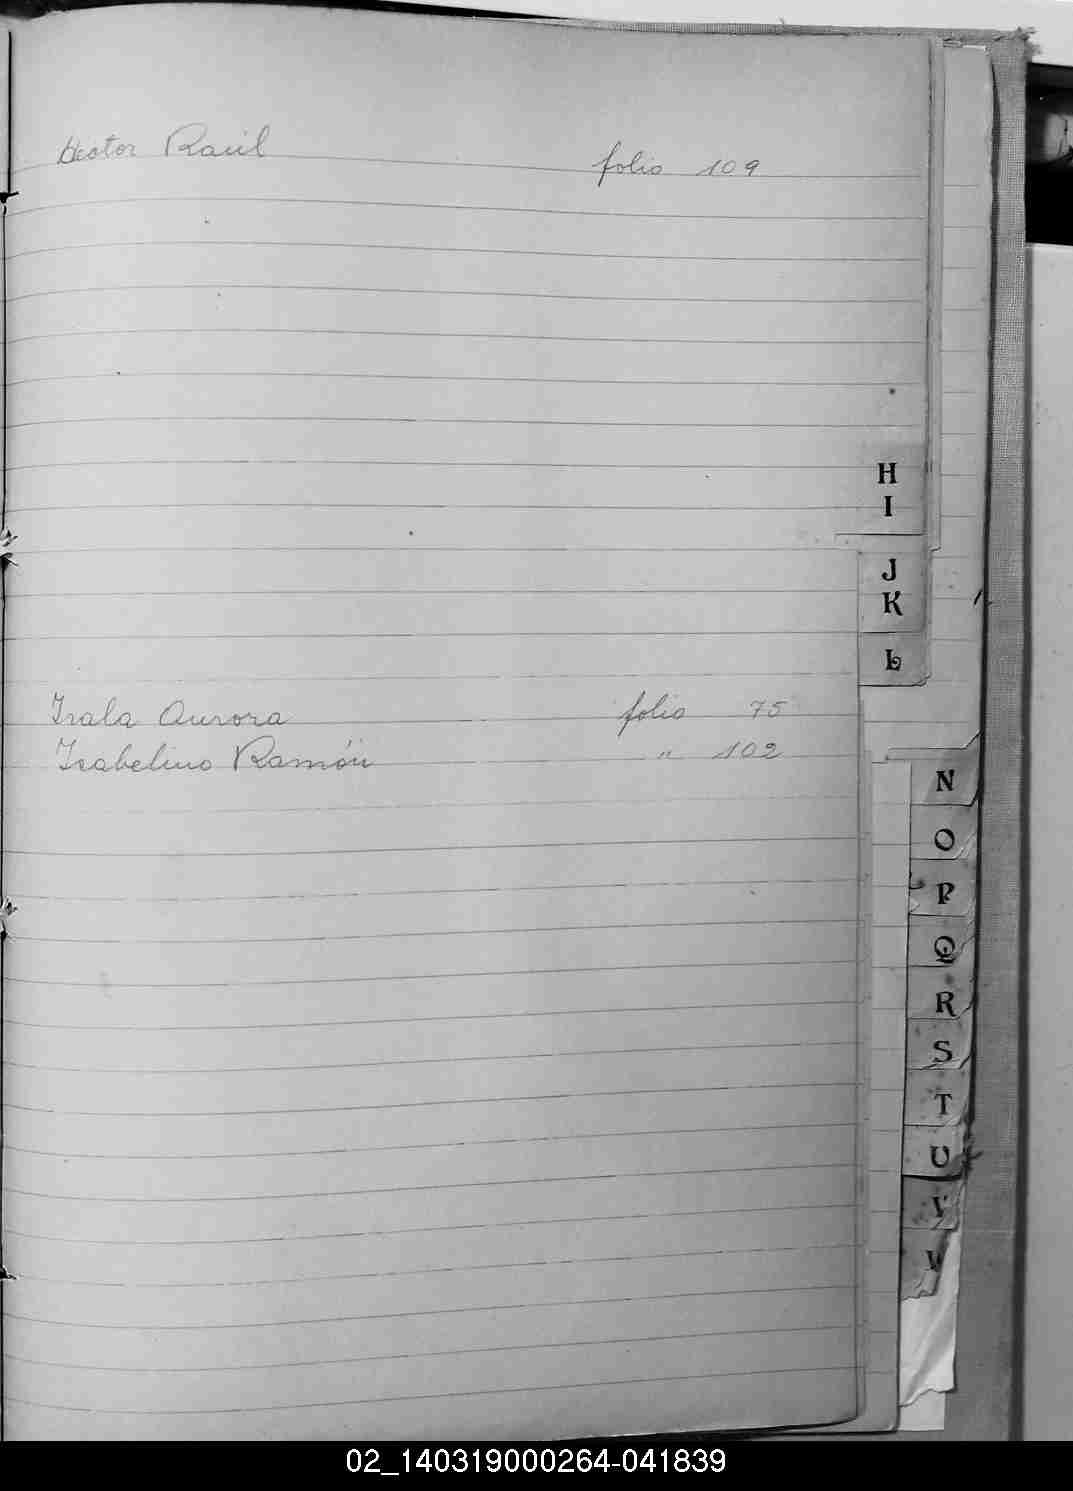 Hector Raúl folio 109
H
I
J
K
L
Irala Aurora folio 75
Isabelino Ramón " 102
N
O
P
Q
R
S
T
U
V
02_140319000264-041839